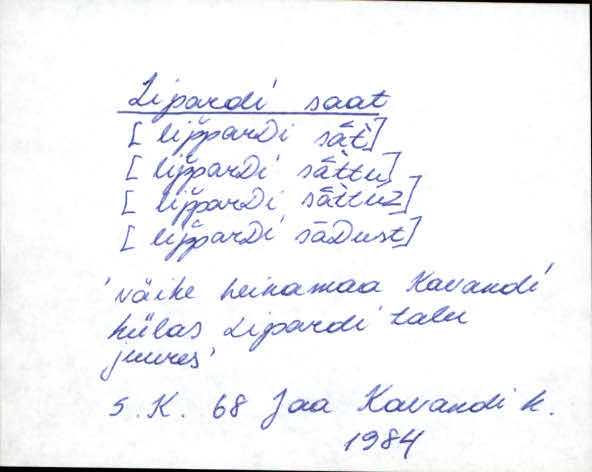 Lipardi saat
[lip̆parDi sāt̀]
[lip̆parDi sāt̀tu]
[lip̆parDi sāt̀tuz]
[lip̆parDi sāDust]
'väike heinamaa Kavandi
külas Lipardi talu
juures'
S. K. 68 Jaa Kavandi k.
1984